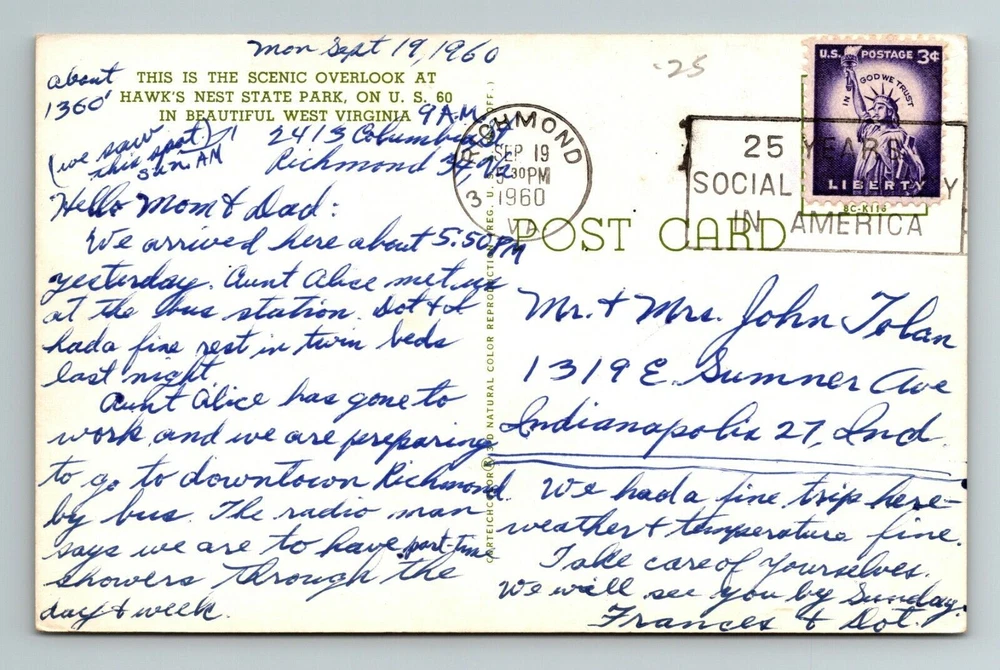 Mon Sept 19, 1960
-25
about
1360'
THIS IS THE SCENIC OVERLOOK AT
HAWK'S NEST STATE PARK, ON U. S. 60
IN BEAUTIFUL WEST VIRGINIA
9 A.M.
(we saw
this spot)
Sun AM
2413 Columbia
Richmond 34, Va.
Hello Mom & Dad:
We arrived here about 5:50 PM
yesterday. Aunt Alice met us
at the bus station. Dot & I
had a fine rest in twin beds
last night.
Aunt Alice has gone to
work and we are preparing
to go to downtown Richmond
by bus. The radio man
says we are to have part-time
showers through the
day & week.
RICHMOND
3
SEP 19
5 30 PM
1960
VA.
25 YEARS
SOCIAL
Y
IN AMERICA
U.S. POSTAGE 3¢
IN GOD WE TRUST
LIBERTY
8C-K116
POST CARD
Mr. & Mrs. John Tolan
1319 E. Sumner Ave
Indianapolis 27, Ind.
We had a fine trip here-
weather & temperature fine.
Take care of yourselves.
We will see you by Sunday.
Frances & Dot.